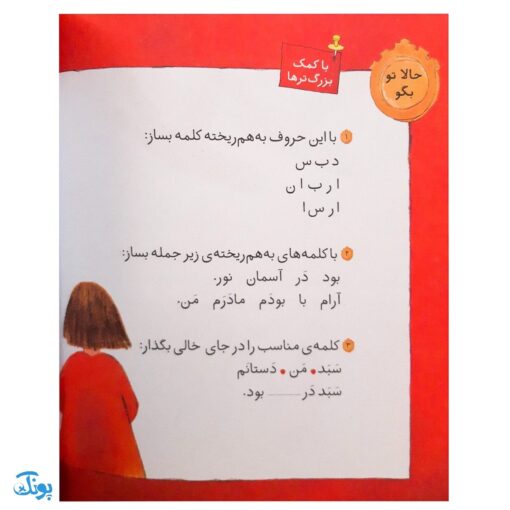 حالا تو
بگو
با کمک
بزرگ‌ترها
۱ با این حروف به‌هم‌ریخته کلمه بساز:
د ب س
ا ر ب ا ن
ا ر س ا
۲ با کلمه‌های به‌هم‌ریخته‌ی زیر جمله بساز:
بود دَر آسمان نور.
آرام با بودَم مادَرَم مَن.
۳ کلمه‌ی مناسب را در جای خالی بگذار:
سَبَد • مَن • دَستانَم
سَبَد دَر ........ بود.
پونک